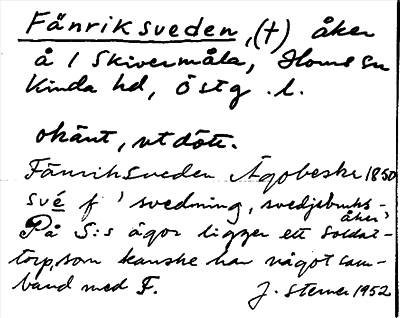 Fänriksveden, (†) åker
å 1 Skivermåla, Horns sn
Kinda hd, Östg. l.
okänt, utdött.
Fänriksveden Ägobeskr 1850
své f 'svedning, svedjebruks-
åker'
På S:s ägor ligger ett soldat-
torp, som kanske har något sam-
band med F. J. Sterner 1952